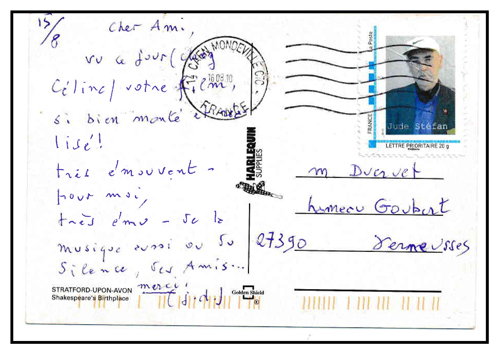 15/8
Cher Ami,
vu ce jour (chez
Céline) votre film,
si bien monté et
lisé!
très émouvant -
pour moi,
très ému - de la
musique aussi ou du
silence, des Amis...
merci!
(j.d.)
STRATFORD-UPON-AVON
Shakespeare's Birthplace
CAEN MONDEVILLE CDC
16.08.10
FRANCE
HARLEQUIN
SUPPLIES
Golden Shield
La Poste
FRANCE
Jude Stéfan
LETTRE PRIORITAIRE 20 g
M Ducruet
Hameau Goubert
27390 Verneusses